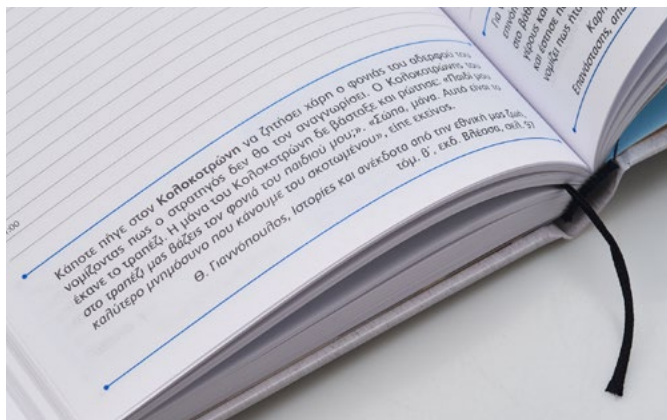 :00
Κάποτε πήγε στον Κολοκοτρώνη να ζητήσει χάρη ο φονιάς του αδερφού του
νομίζοντας πως ο στρατηγός δεν θα τον αναγνωρίσει. Ο Κολοκοτρώνης του
έκανε το τραπέζι. Η μάνα του Κολοκοτρώνη δε βάσταξε και ρώτησε: «Παιδί μου
στο τραπέζι μας βάζεις τον φονιά του παιδιού μου;». «Σώπα, μάνα. Αυτό είναι το
καλύτερο μνημόσυνο που κάνουμε του σκοτωμένου», είπε εκείνος.
Θ. Γιαννόπουλος, Ιστορίες και ανέκδοτα από την εθνική μας ζωή,
τόμ. β΄, εκδ. Βλέσσα, σελ. 57
Για
επινόη
στο βάθ
γέρους και
και έστησε π
νομίζει πως ήτ
Καρη
Επανάστασης, από